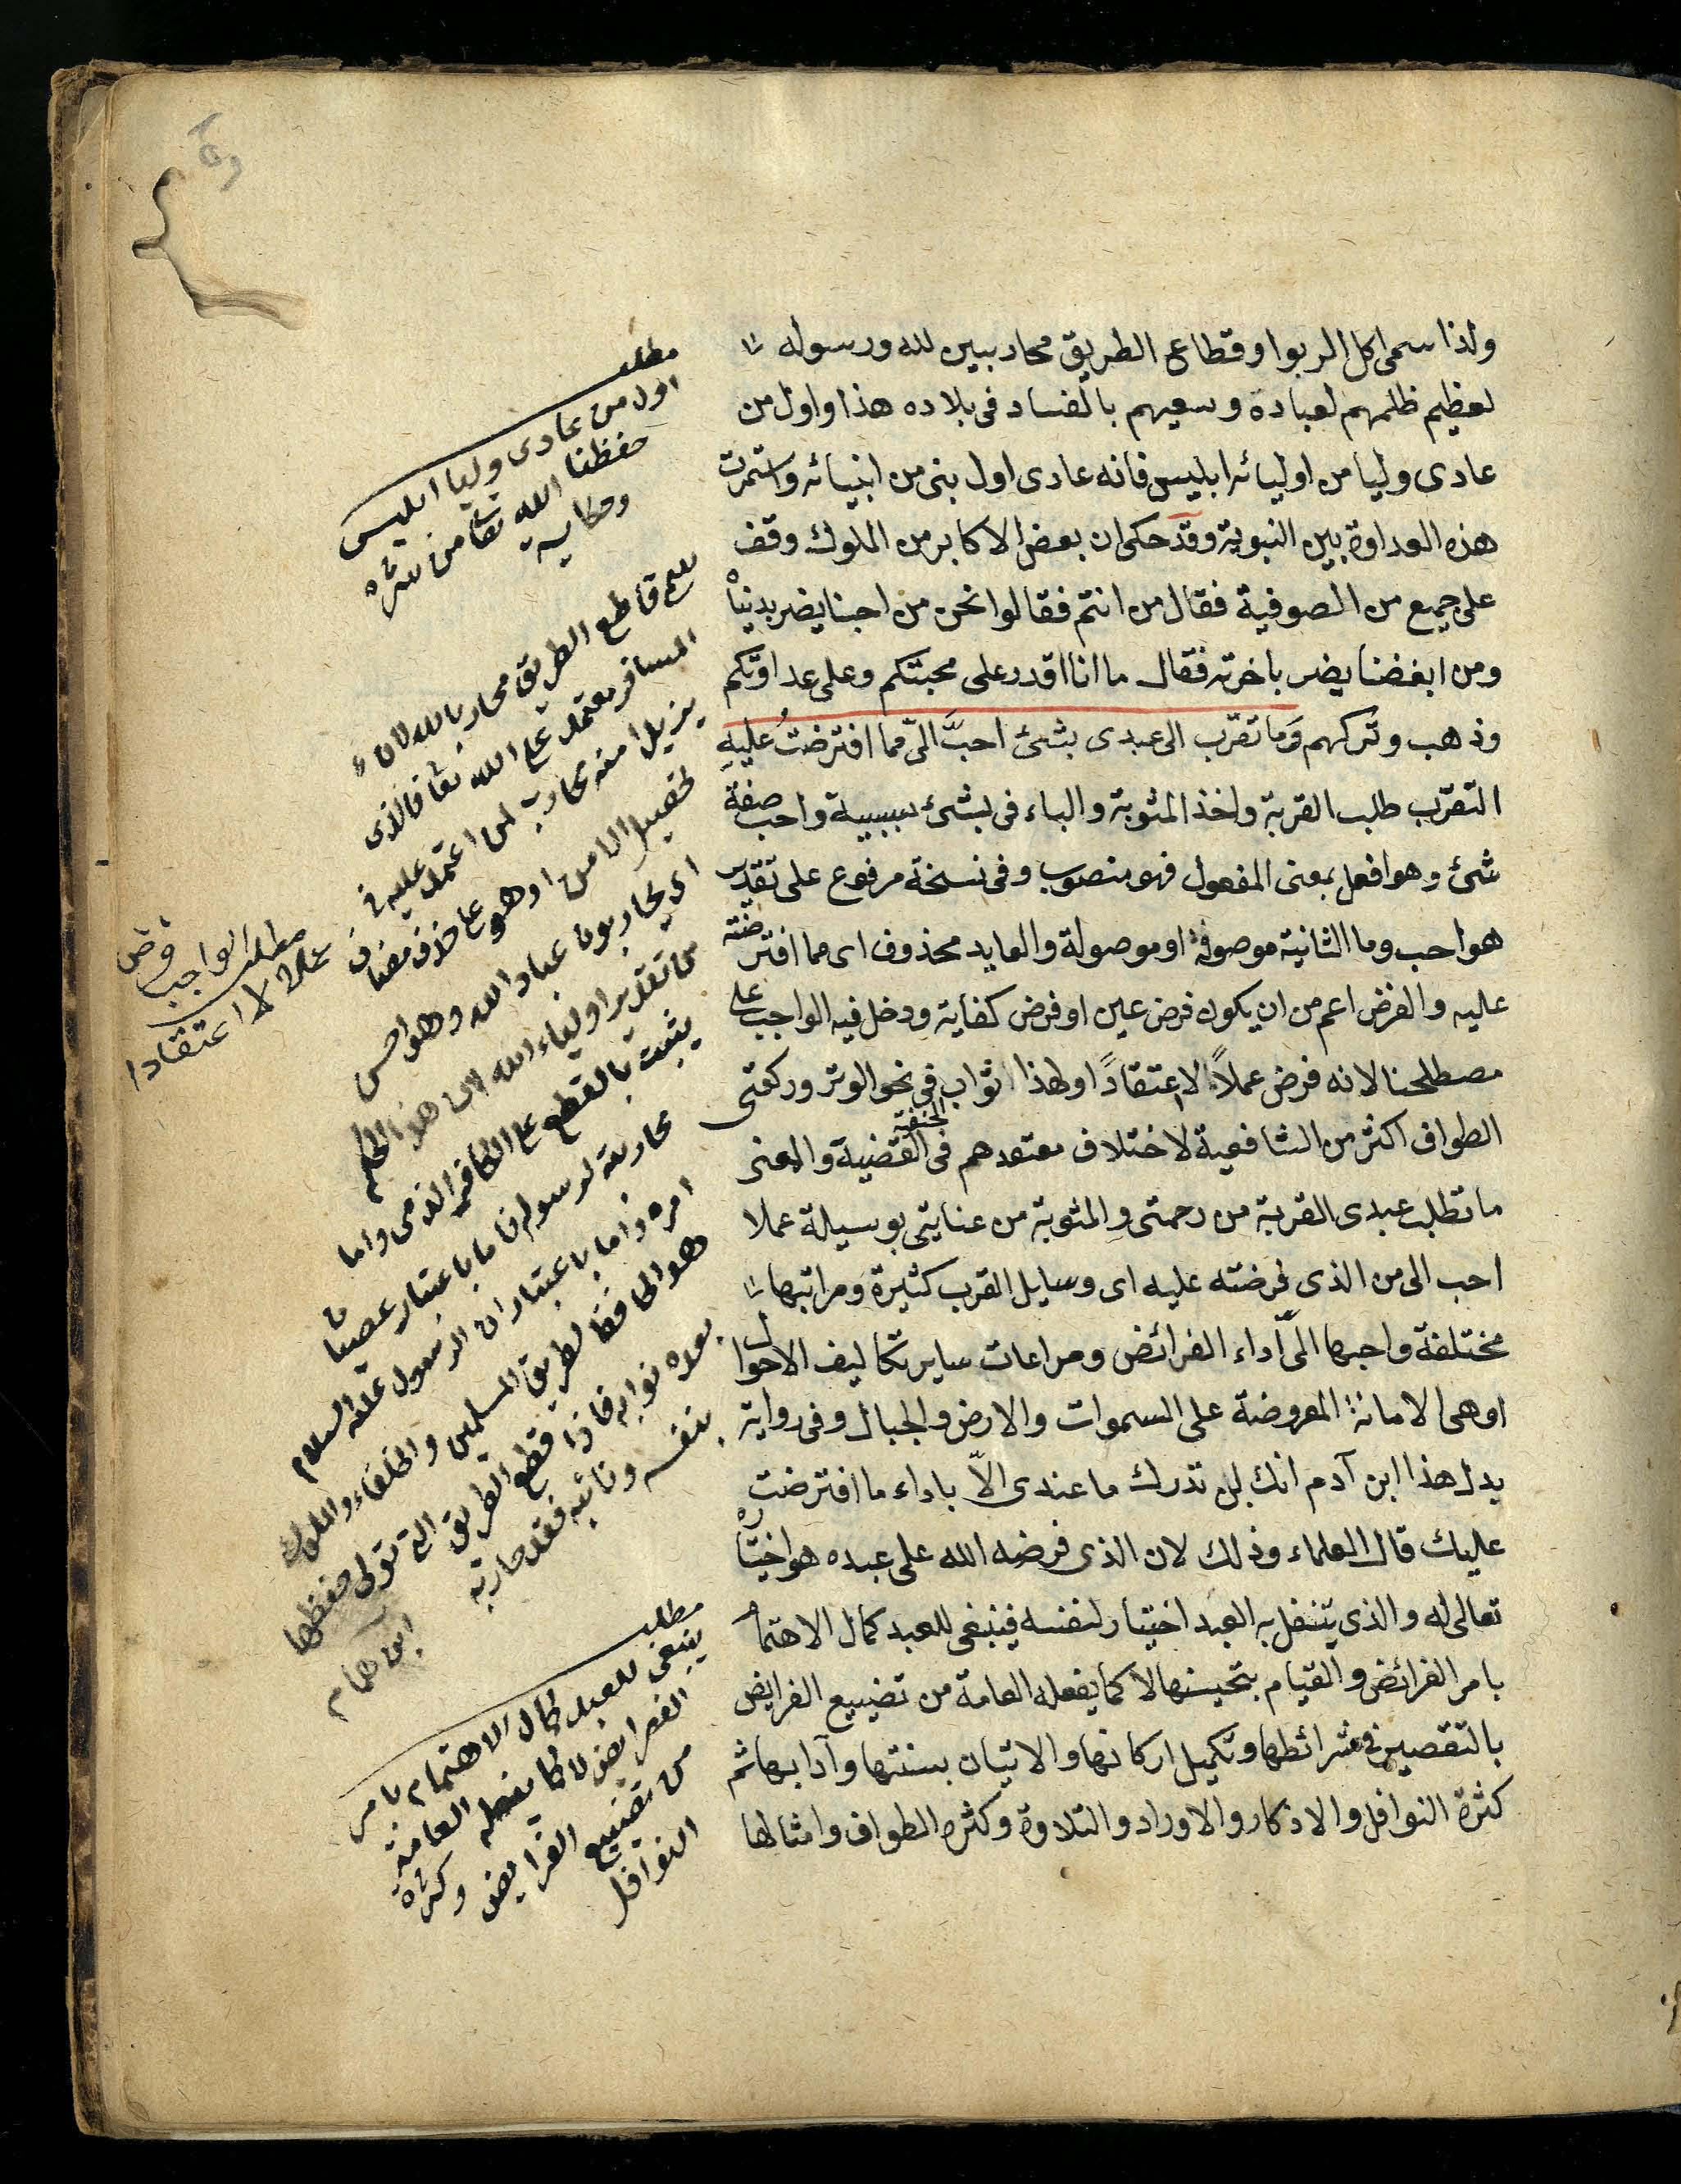 ولذا سمى اكل الربوا وقطاع الطريق محاربين لله ورسوله
لعظيم ظلمهم لعباده وسعيهم بالفساد فى بلاده هذا واول من
عادى وليا من اوليائه ابليس فانه عادى اول بنى من انبيائه واستمرت
هذه العداوة بين النبوية وقد حكى ان بعض الاكابر من الملوك وقف
على جمع من الصوفية فقال من انتم فقالوا نحن من احبنا يضر بدنياه
ومن ابغضنا يضر باخرته فقال ما انا اقدر على محبتكم وعلى عداوتكم
وذهب وتركهم وَما تقرّب الى عبدى بشئ احبَّ الىّ مما افترضتُ عليهِ
التقرّب طلب القربة واخذ المثوبة والباء فى بشئ سببية واحب صفة
شئ وهو افعل بمعنى المفعول فهو منصوب وفى نسخة مرفوع على تقدير
هو احب وما الثانية موصوفة او موصولة والعايد محذوف اى مما افترضته
عليه والفرض اعم من ان يكون فرض عين او فرض كفاية ودخل فيه الواجب على
مصطلحنا لانه فرض عملاً لا اعتقادً اولهذا اثواب فى نحو الوتر وركعتى
الطواف اكثر من الشافعية لاختلاف معتقدهم فى القضية والمعنى
الحنفية
ما تطلب عبدى القربة من رحمتى والمثوبة من عنايتى بوسيلة عملا
احب الى من الذى فرضته عليه اى وسايل القرب كثيرة ومراتبها
مختلفة واحبها الىّ اداء الفرائض ومراعات ساير تكاليف الاحوال
او هى الامانة المعروضة على السموات والارض والجبال وفى رواية
بدل هذا ابن آدم انك لن تدرك ما عندى الاّ باداء ما افترضت
عليك قال العلماء وذلك لان الذى فرضه الله على عبده هو اختياره
تعالى له والذى يتنفل به العبد اختيار لنفسه فينبغى للعبد كمال الاهتمام
بامر الفرائض والقيام بتحسينها لا كما يفعله العامة من تضييع الفرايض
بالتقصير فى شرائطها وتكميل اركانها والاتيان بسنتها وآدابها ثم
كثرة النوافل والاذكار والاوراد والتلاوة وكثرة الطواف وامثالها
مطلب
اول من عادى وليا ابليس
حفظنا الله تعا من شره
وحكاية
قاطع الطريق محارب الله لان
المسافر معتمد على الله تعا فالذى
يزيل امنه محارب لمن اعتمد عليه فى
تحصيل الامن او هو على حذف مضاف
اى يحاربون عباد الله وهو احسن
من تقدير اولياء الله لان هذا الحكم
يثبت بالقطع على الكافر الذمى واما
محاربته لرسوله فاما باعتبار عصيان
امره واما باعتبار ان الرسول عليه السلام
هو الحافظ لطريق المسلمين والخلفاء والملوك
بعده نوابه فاذا قطع الطريق التى تولى حفظها
بنفسه ونائبه فقد حاربه
ابن همام
مطلب الواجب فرض
عملا لا اعتقادا
مطلب
ينبغى للعبد كمال الاهتمام بامر
الفرايض لا كما يفعله العامة
من تضييع الفرايض وكثرة
النوافل